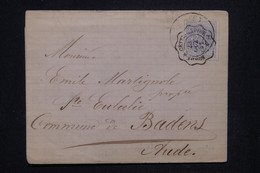 Monsieur
Emile Martignole
Ste Eulalie
Commune de Badens
Aude.